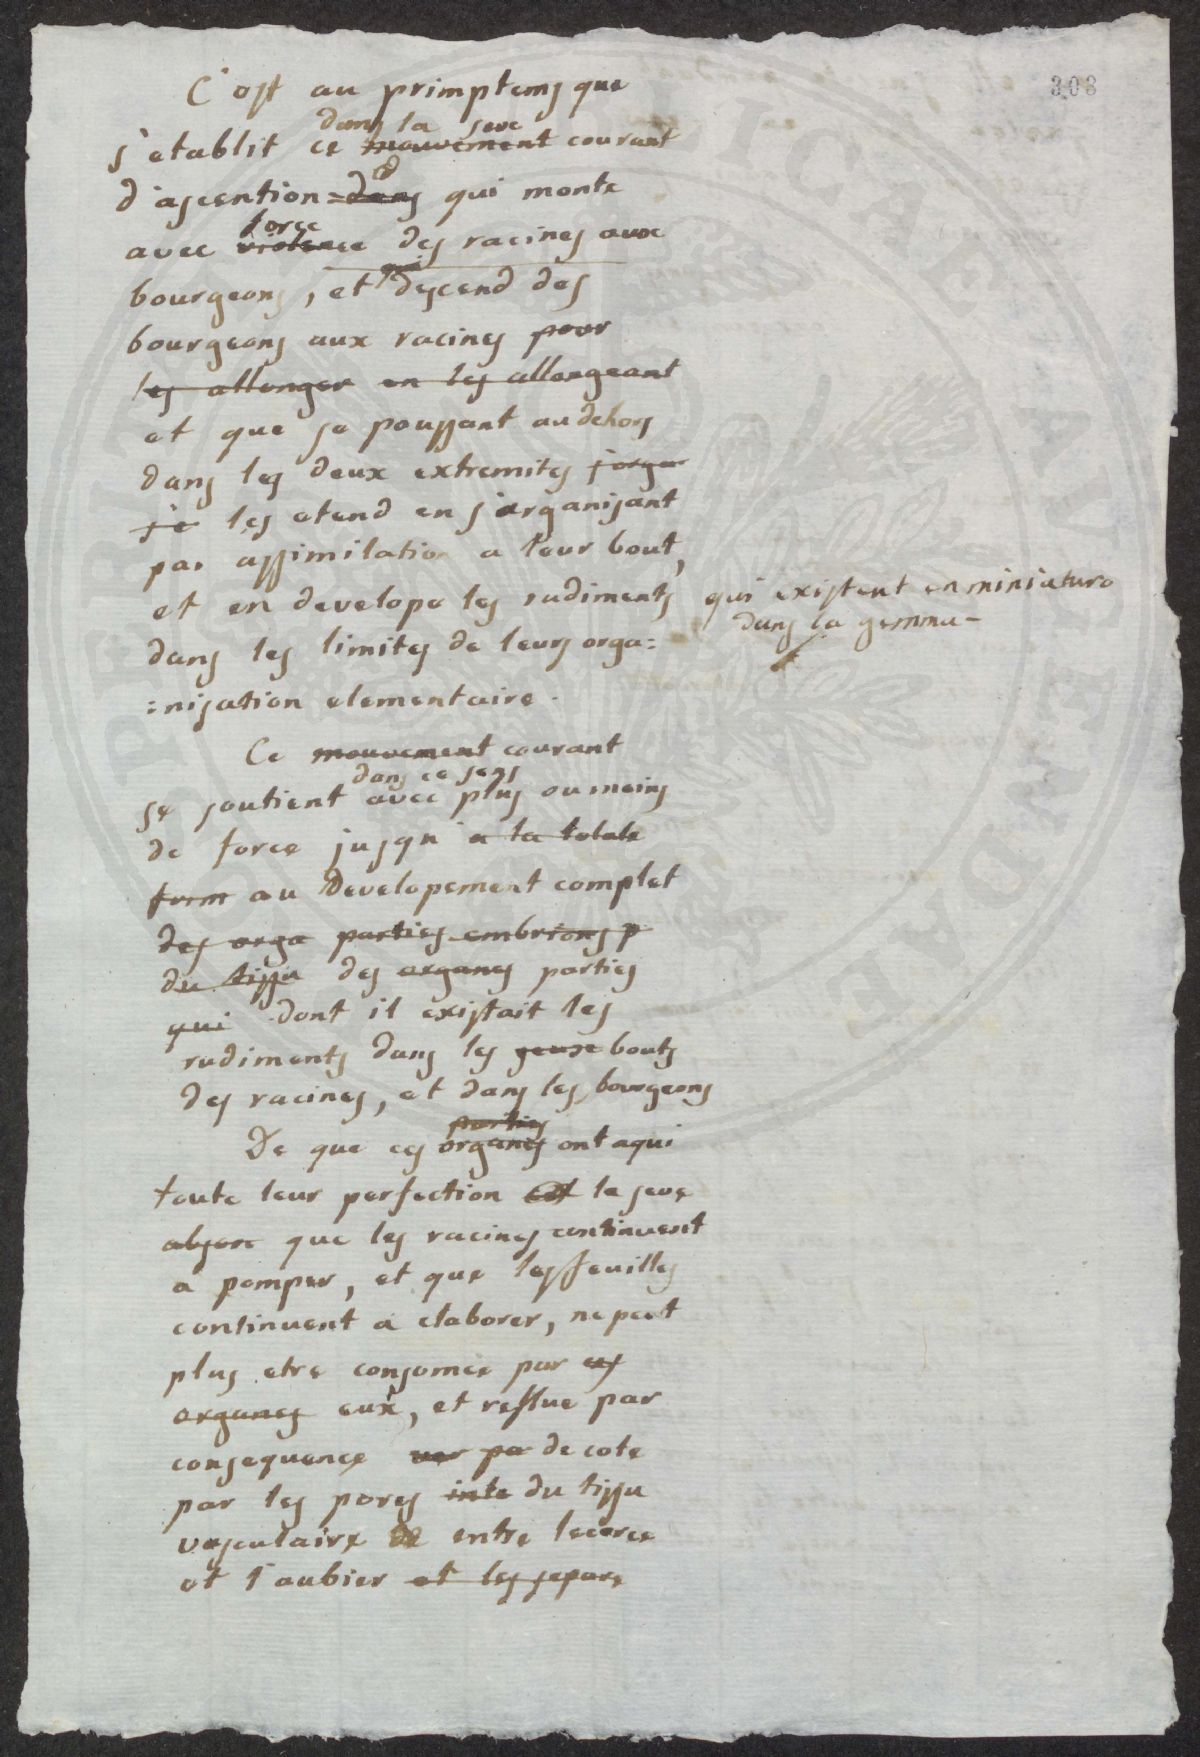 308
C'est au primptems que
dans la seve
s'etablit ce mouvement courant
d'ascention = dans qui monte
force
avec violence des racines aux
qui
bourgeons, et descend des
bourgeons aux racines pour
les allonger en les allongeant
et que se poussant au dehors
dans les deux extremites s'orga
se les etend en s'organisant
par assimilation a leur bout,
et en develope les rudiments qui existent en miniature
dans la gemma -
dans les limites de leurs orga =
= nisation elementaire.
Ce mouvement courant
dans ce sens
se soutient avec plus ou moins
de force jusqu'a la totale
form au developement complet
des orga parties embrions p
du tissu des organes parties
qui dont il existait les
rudiments dans les yeux bouts
des racines, et dans les bourgeons
parties
De que ces organes ont aqui
toute leur perfection et la seve
absor que les racines continuent
a pomper, et que les feuilles
continuent a elaborer, ne peut
plus etre consomee par ces
organes eux, et reflue par
consequence ver pa de cote
par les pores inte du tissu
vasculaire de entre lecorce
et l'aubier et les separe